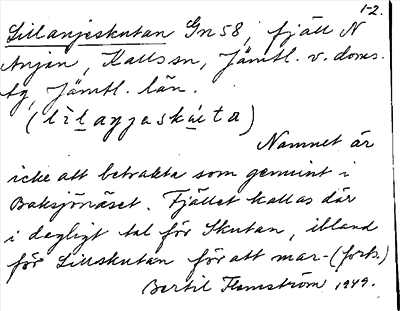 1-2.
Lillanjeskutan Gn 58, fjäll N
Anjan, Kallssn, Jämtl. v. doms.
tg, Jämtl. län.
(lìlaŋjaskáita)
Namnet är
icke att betrakta som genuint i
Baksjönäset. Fjället kallas där
i dagligt tal för Skutan, ibland
för Lillskutan för att mar- (forts.)
Bertil Flemström 1949.